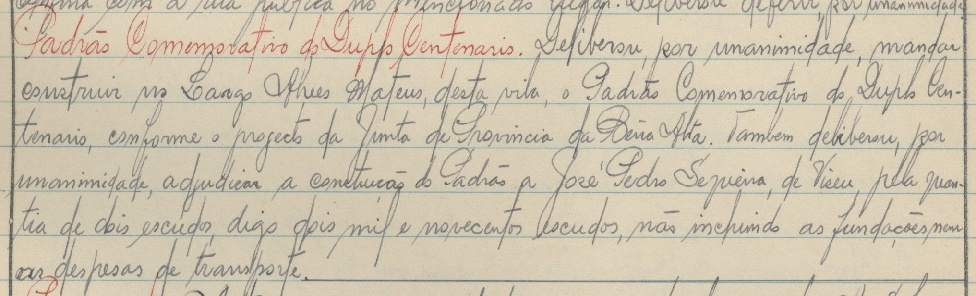 com a rua pública no mencionado lugar. Deliberou deferir, por unanimidade
Padrão Comemorativo do Duplo Centenario. Deliberou, por unanimidade, mandar
construir no Largo Alves Mateus, desta vila, o Padrão Comemorativo do Duplo Cen-
tenario, conforme o projecto da Junta de Provincia da Beira Alta. Tambem deliberou, por
unanimidade, adjudicar a construção do Padrão a José Pedro Sequeira, de Viseu, pela quan-
tia de dois escudos, digo dois mil e novecentos escudos, não incluindo as fundações nem
as despesas de transporte.